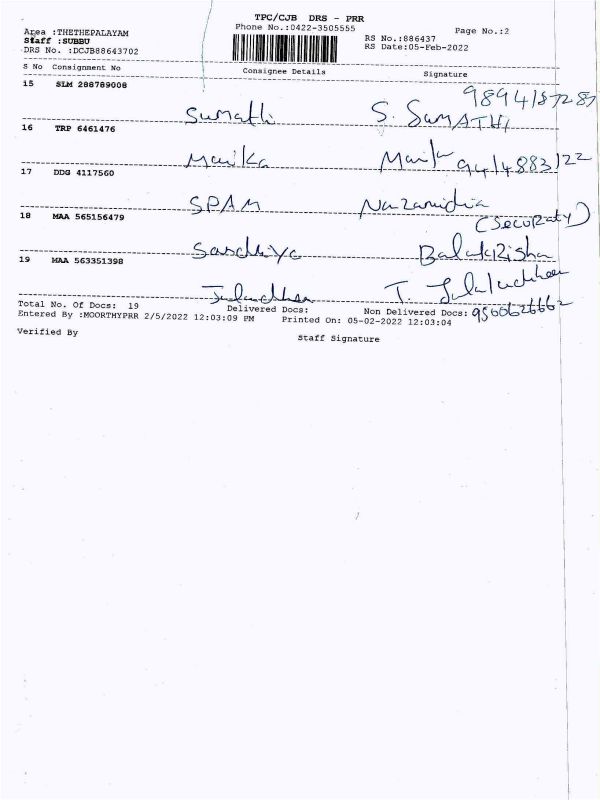 TPC/CJB DRS - PRR
Phone No.:0422-3505555 Page No.:2
Area :THETHEPALAYAM
Staff :SUBBU RS No.:886437
DRS No. :DCJB88643702 RS Date:05-Feb-2022
S No Consignment No Consignee Details Signature
15 SLM 288789008
Sumathi S. SUMATHI
16 TRP 6461476
17 DDG 4117560
SPAM
18 MAA 565156479 (Security)
19 MAA 563351398
Total No. Of Docs: 19 Delivered Docs: Non Delivered Docs: 9500626662
Entered By :MOORTHYPRR 2/5/2022 12:03:09 PM Printed On: 05-02-2022 12:03:04
Verified By Staff Signature